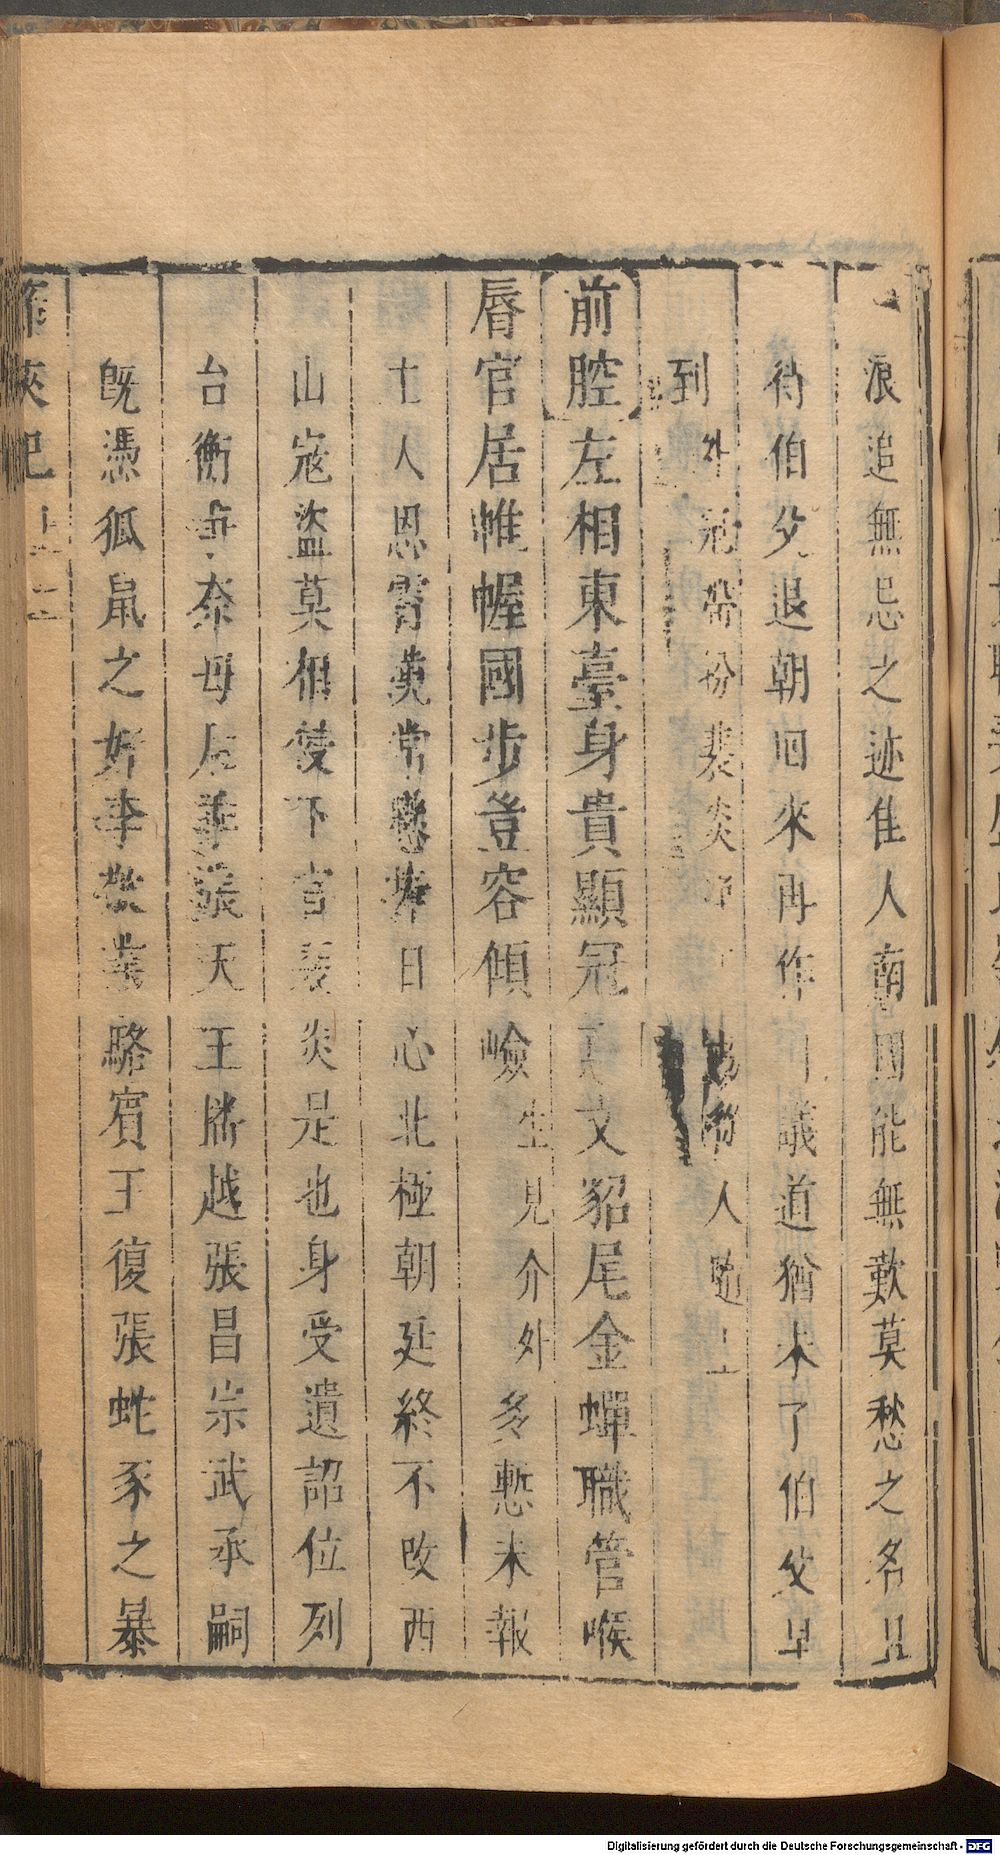 浪追無忌之迹佳人南國能無歎莫愁之名且
待伯父退朝回來再作商議道猶未了伯父早
到 外冠帶扮裴炎 人隨上
前腔左相東臺身貴顯冠 文貂尾金蟬職管喉
唇官居帷幄國步登容傾嶮生見介外多慙未報
士人恩霄漢常懸捧日心北極朝廷終不改西
山寇盜莫相侵下官裴炎是也身受遺詔位列
台衡 奈母后 張天王勝越張昌宗武承嗣
既憑狐鼠之奸李敬業駱賓王復張蛇豕之暴
俠記
Digitalisierung gefördert durch die Deutsche Forschungsgemeinschaft - DFG